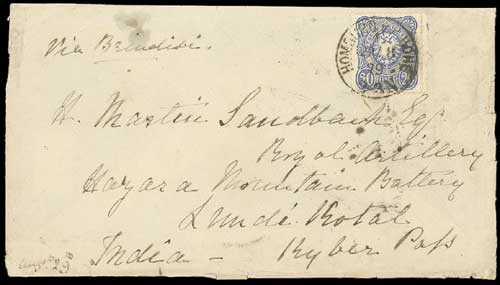 Via Brindisi.
HOMBURG v.d. HÖHE
20
H. Martin Sandbach Esq
Royal Artillery
Hazara Mountain Battery
Lundi Kotal
India — Kyber Pass